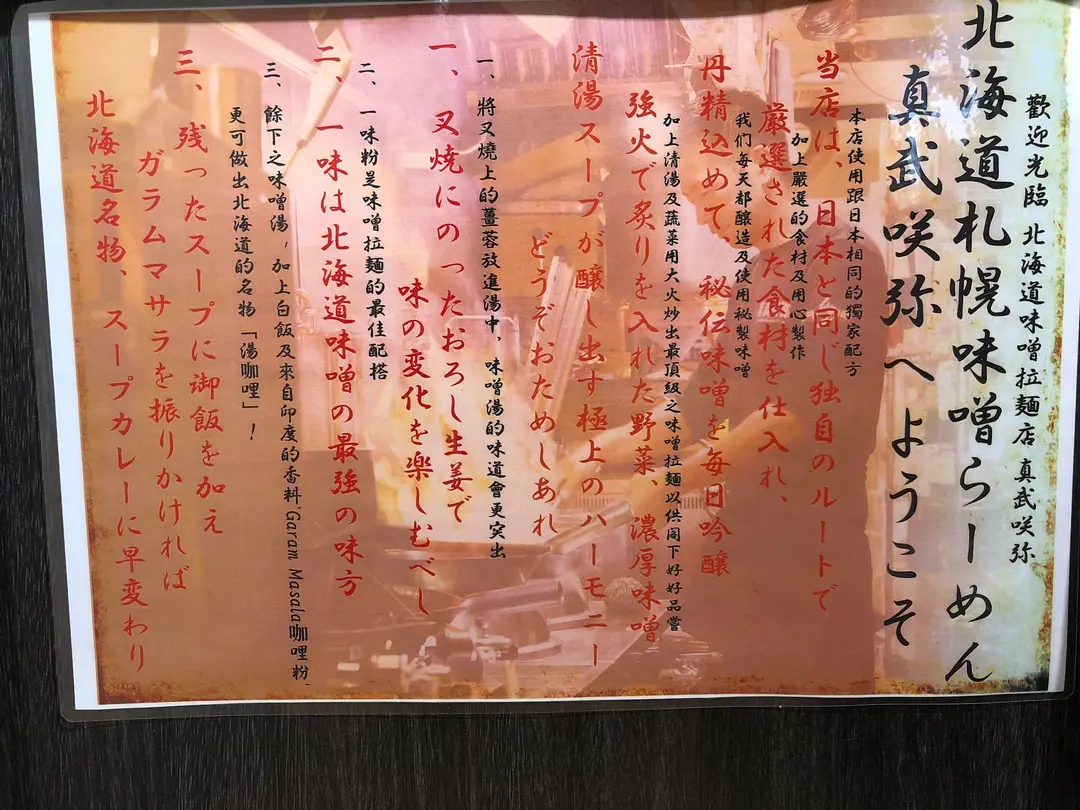 歡迎光臨 北海道味噌拉麵店 真武咲弥
北海道札幌味噌らーめん
真武咲弥へようこそ
本店使用跟日本相同的獨家配方
当店は、日本と同じ独自のルートで
加上嚴選的食材及用心製作
厳選された食材を仕入れ、
我们每天都釀造及使用秘製味噌
丹精込めて 秘伝味噌を毎日吟醸
加上清湯及蔬菜用大火炒出最頂級之味噌拉麵以供閣下好好品嘗
強火で炙りを入れた野菜、濃厚味噌
清湯スープが醸し出す極上のハーモニー
どうぞおためしあれ
一、將叉燒上的薑蓉放進湯中，味噌湯的味道會更突出
一、叉焼にのったおろし生姜で
味の変化を楽しむべし
二、一味粉是味噌拉麵的最佳配搭
二、一味は北海道味噌の最強の味方
三、餘下之味噌湯，加上白飯及來自印度的香料"Garam Masala咖哩粉"
更可做出北海道的名物「湯咖哩」！
三、残ったスープに御飯を加え
ガラムマサラを振りかければ
北海道名物、スープカレーに早変わり